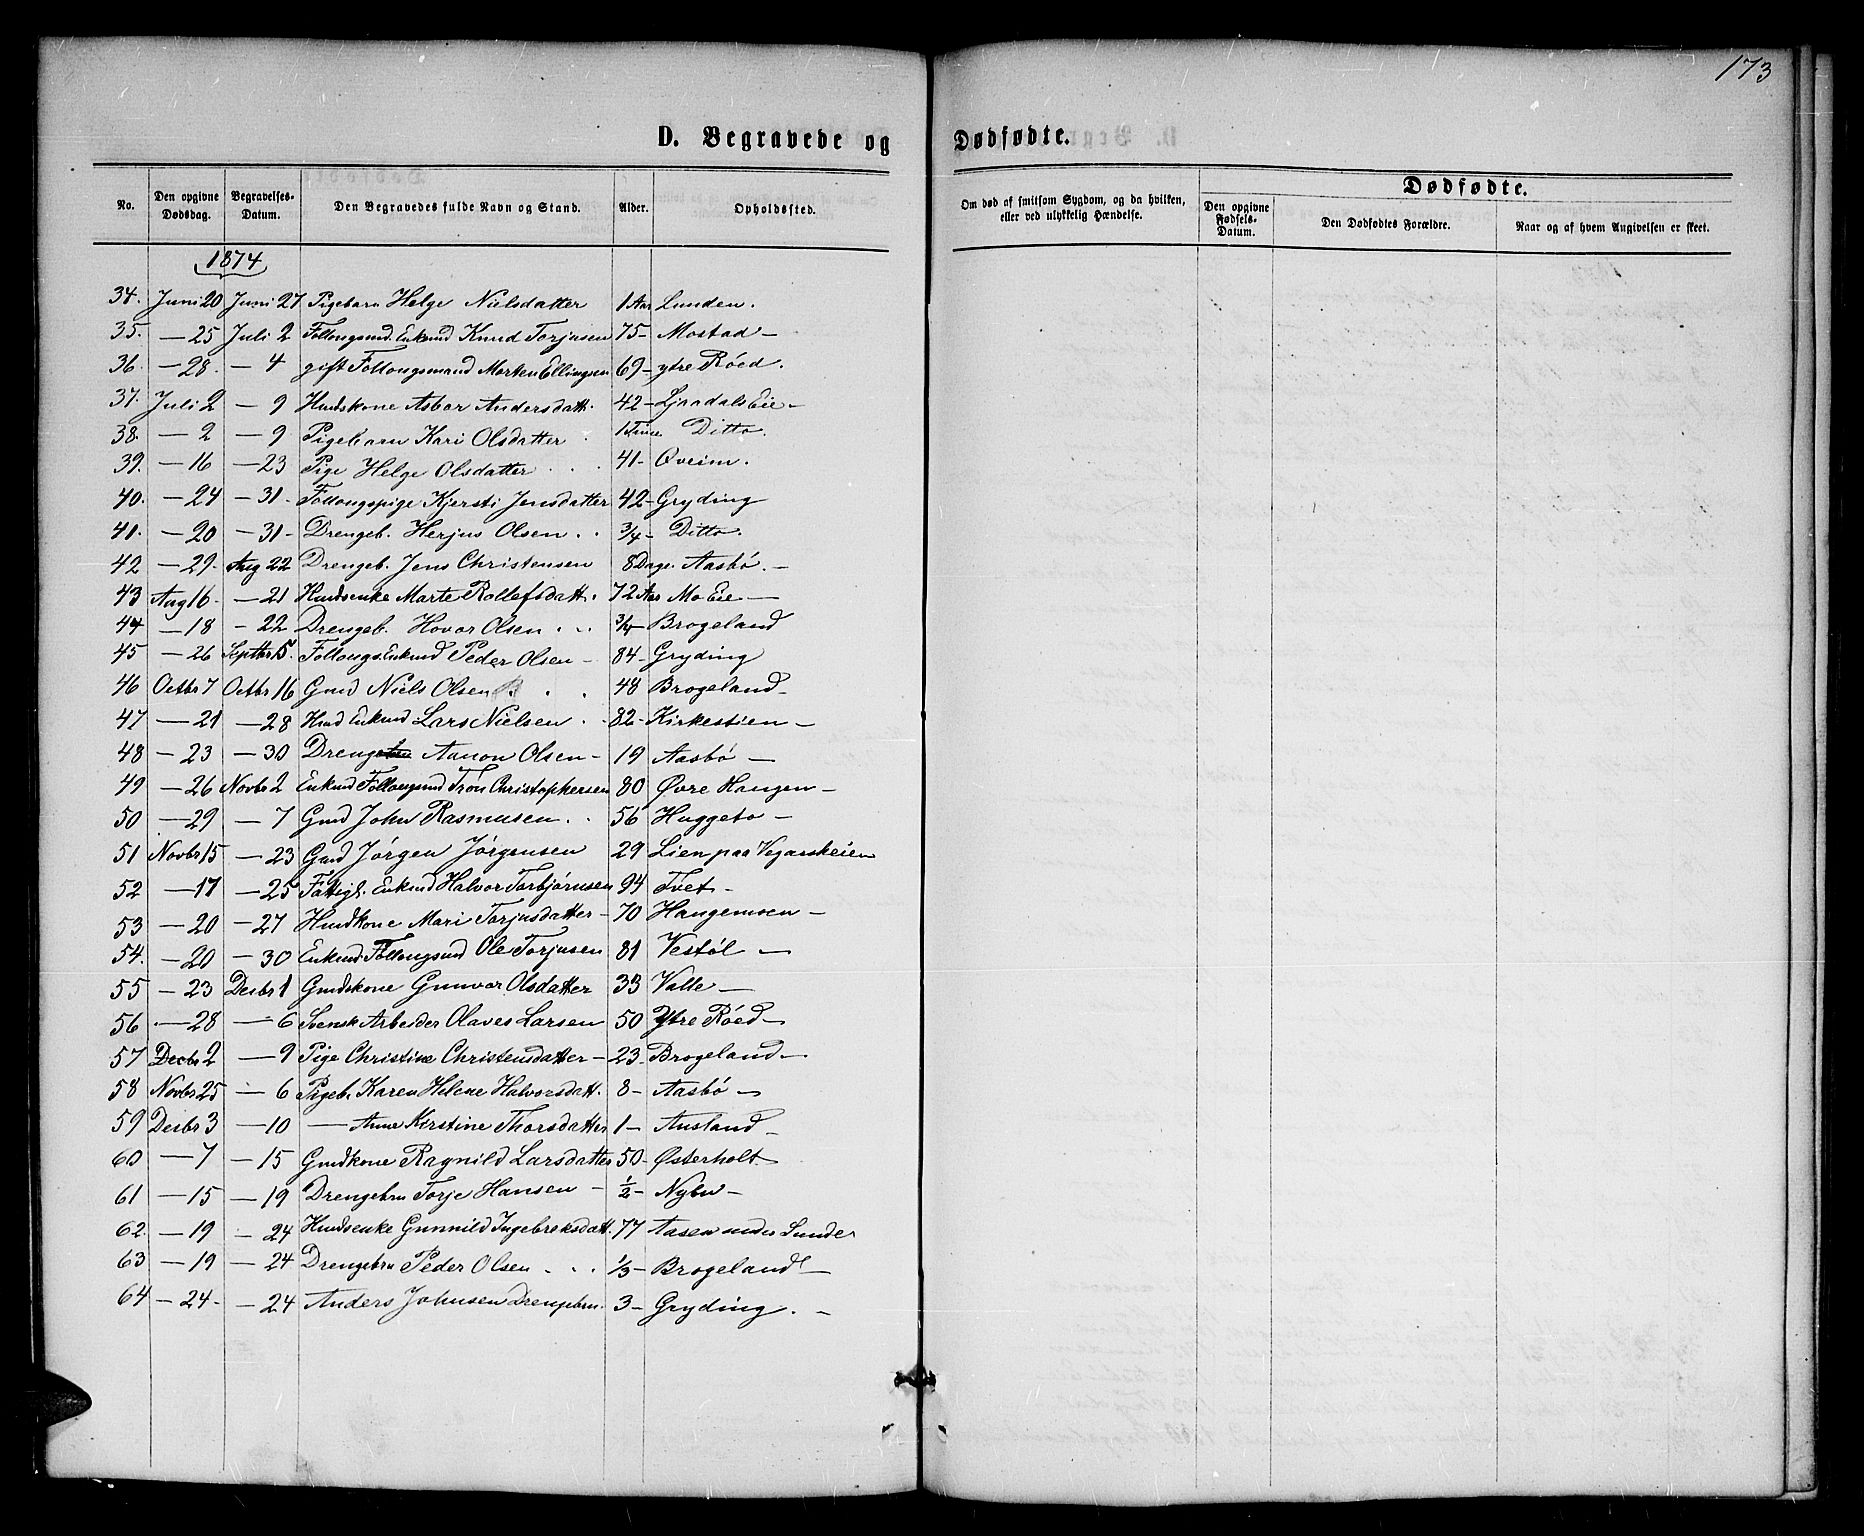 173
D. Begravede og Dødfødte.
No. Den opgivne Dødsdag. Begravelses-Datum. Den Begravedes fulde Navn og Stand. Alder. Opholdssted. Om død af smitsom Sygdom, og da hvilken, eller ved ulykkelig Hændelse. Dødfødte.
Den opgivne Fødsels-Datum. Den Dødfødtes Forældre. Naar og af hvem Angivelsen er skeet.
1874
34. Juni 20 Juni 27 Pigebarn Helge Nielsdatter 1 Aar Lunden.
35. — 25 Juli 2 Føllougsmd. Enkmd Knud Torjusen 75 - Mostad —
36. — 28. — 4 gift Føllougsmand Morten Ellingsen 69 - ytre Röed.
37. Juli 2 — 9 Hmdskone Asbor Andersdatt. 42 - Ljaadals Eie —
38. — 2 — 9 Pigebarn Kari Olsdatter 1 Time Ditto.
39. — 16 — 23 Pige Helge Olsdatter 41 - Oveim.
40. — 24 — 31 - Føllougspige Kjersti Jensdatter 42 - Gryding
41. — 20 — 31 - Drengeb. Herjus Olsen 3/4 - Ditto.
42 — 29. Aug 22 Drengeb. Jens Christensen 8 Dage. Aasbö. —
43 Aug 16 — 21 Hmdsenke Marte Rollefsdatt. 72 Aar Mo Eie —
44 — 18 - 22 Drengeb. Hovor Olsen 3/4 - Brogeland
45 — 26 Septbr 5. Føllougs. Enkmd Peder Olsen — 84 - Gryding
46 Octbr 7 Octbr 16 Gmd Niels Olsen 48 Brogeland -
47 — 21 — 28 Hmd Enkmd Lars Nielsen 82 - Kirkestien —
48 — 23 — 30 Dreng Aanon Olsen - 19 Aasbö —
49 — 26 Novbr 2 Enkmd Føllougsmd Trön Christophersen 80 Øvre Haugen —
50 — 29 — 7 Gmd John Rasmusen 56 Huggeto —
51 Novbr 15 — 23 Gmd Jörgen Jörgensen 29 Lien paa Vegarskeien
52 — 17 — 25 Fattigl. Enkmd Halvor Torbjörnsen 94 Tvet -
53 — 20 — 27 Hmdkone Mari Torjusdatter - 70 Haugemoen —
54. — 20 — 30 Enkmd. Føllougsmd Ole Torjusen 81 Vestöl —
55 — 23 Desbr 1 Gmdskone Gunvor Olsdatter 33 Valle —
56 — 28 — 6 Svensk Arbeider Olaves Larsen 50 Ytre Röed —
57 Decbr 2 — 9 Pige Christine Christensdatter — 23 - Brogeland —
58 Novbr 25 — 6 Pigeb. Karen Helene Halvorsdatt. 8 - Aasbö —
59 Desbr 3 — 10 — Anne Kirstine Thorsdatter 1 - Ausland —
60 — 7 — 15 Gmdkone Ragnild Larsdatter 50 - Østerholt
61 — 15 — 19 Drengebrn Torje Hansen - 1/2 - Nybu —
62. — 19 - 24 Hmdsenke Gunnild Ingebreksdatt. 77 Aasen under Sunde
63 — 19 — 24 Drengebrn Peder Olsen 1/3 - Brogeland —
64 — 24 - — 24 Anders Johnsen Drengebrn. 3 - Gryding. —